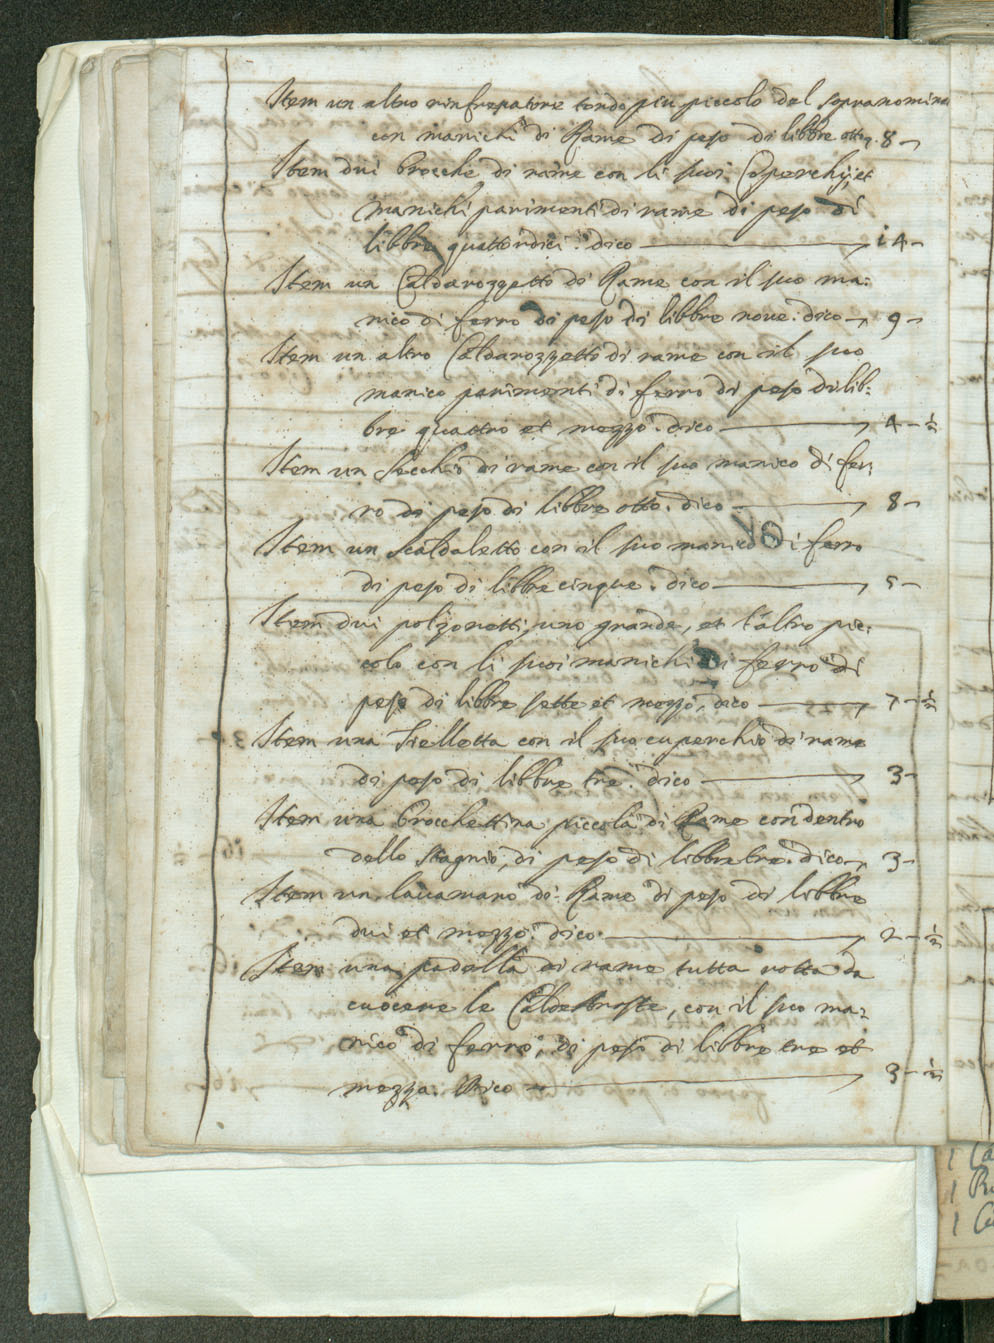 Item un altro rinfrescatore tondo piu piccolo del sopranomina
con manichi di Rame di peso di libbre otto. 8 -
Item dui brocche di rame con li suoi Coperchij, et
manichi parimenti di rame di peso di
libbre quattordici. dico 14 -
Item un Caldarozzetto di Rame con il suo ma:
nico di ferro di peso di libbre nove. dico 9 -
Item un altro Caldarozzetto di rame con il suo
manico parimenti di ferro di peso di lib:
bre quattro et mezzo. dico 4 - ½
Item un Secchio di rame con il suo manico di fer:
ro di peso di libbre otto. dico 8 -
Item un Scaldaletto con il suo manico di ferro
di peso di libbre cinque. dico 5 -
Item dui polzonetti, uno grande, et l'altro pic:
colo con li suoi manichi di ferro di
peso di libbre sette et mezzo, dico 7 - ½
Item una Sielletta con il suo cuperchio di rame
di peso di libbre tre. dico 3 -
Item una brocchettina piccola di Rame con dentro
dello Stagnio, di peso di libbre tre. dico 3 -
Item un lavamano di Rame di peso di libbre
dui et mezzo. dico 2 - ½
Item una padella di rame tutta rotta da
cuocere le Caldebroste, con il suo ma:
nico di ferro, di peso di libbre tre et
mezza. Dico 3 - ½